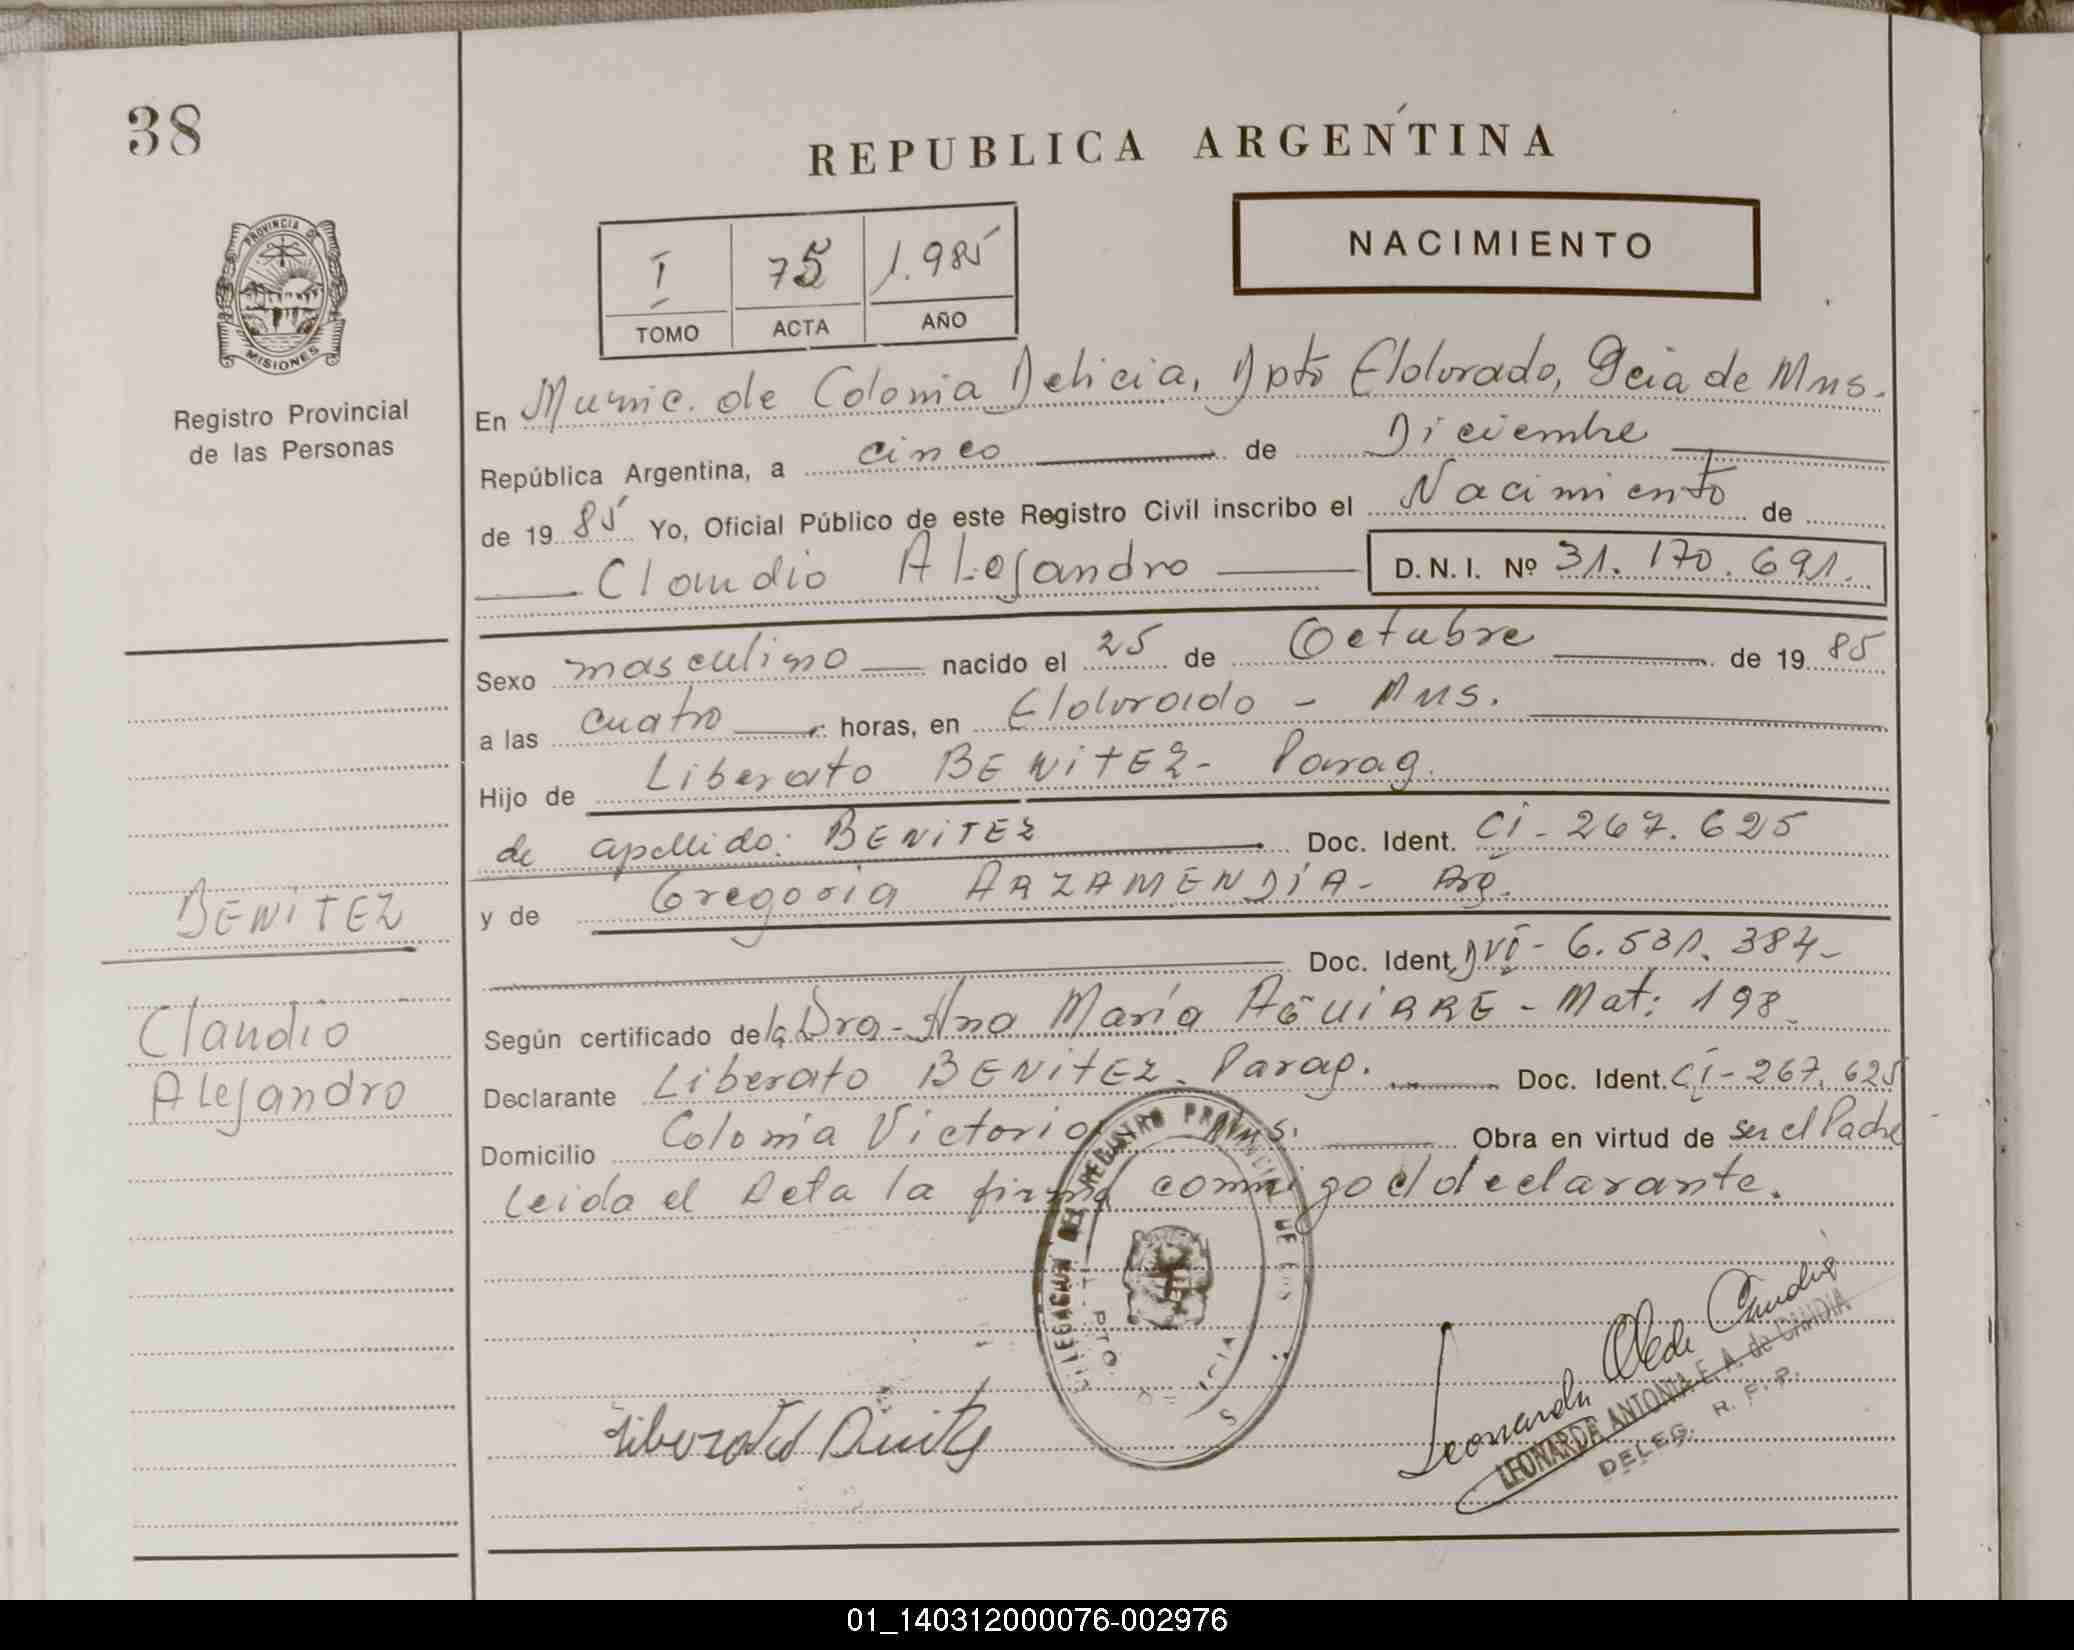 38
REPUBLICA ARGENTINA
PROVINCIA DE
MISIONES
Registro Provincial
de las Personas
NACIMIENTO
I 75 1.985
TOMO ACTA AÑO
En Munic. de Colonia Delicia, Dpto Eldorado, Pcia de Mns.
República Argentina, a cinco de Diciembre
de 1985 Yo, Oficial Público de este Registro Civil inscribo el Nacimiento de
Claudio Alejandro D.N.I. Nº 31.170.691.
Sexo masculino nacido el 25 de Octubre de 1985
a las cuatro horas, en Eldorado - Mns.
Hijo de Liberato BENITEZ - Parag.
de apellido: BENITEZ Doc. Ident. CI - 267.625
y de Gregoria ARZAMENDIA - Arg.
Doc. Ident. DNI - 6.531.384-
Según certificado de la Dra - Ana María AGUIRRE - Mat: 198.
Declarante Liberato BENITEZ - Parag. Doc. Ident. CI - 267.625
Domicilio Colonia Victoria Mns. Obra en virtud de ser el Padre
Leida el Acta la firma conmigo el declarante.
BENITEZ
Claudio
Alejandro
DELEGACION DEL REGISTRO PROVINCIAL DE
PTO.
LEONARDA ANTONIA E. A. de CANDIA
DELEG. R. P. P.
01_140312000076-002976